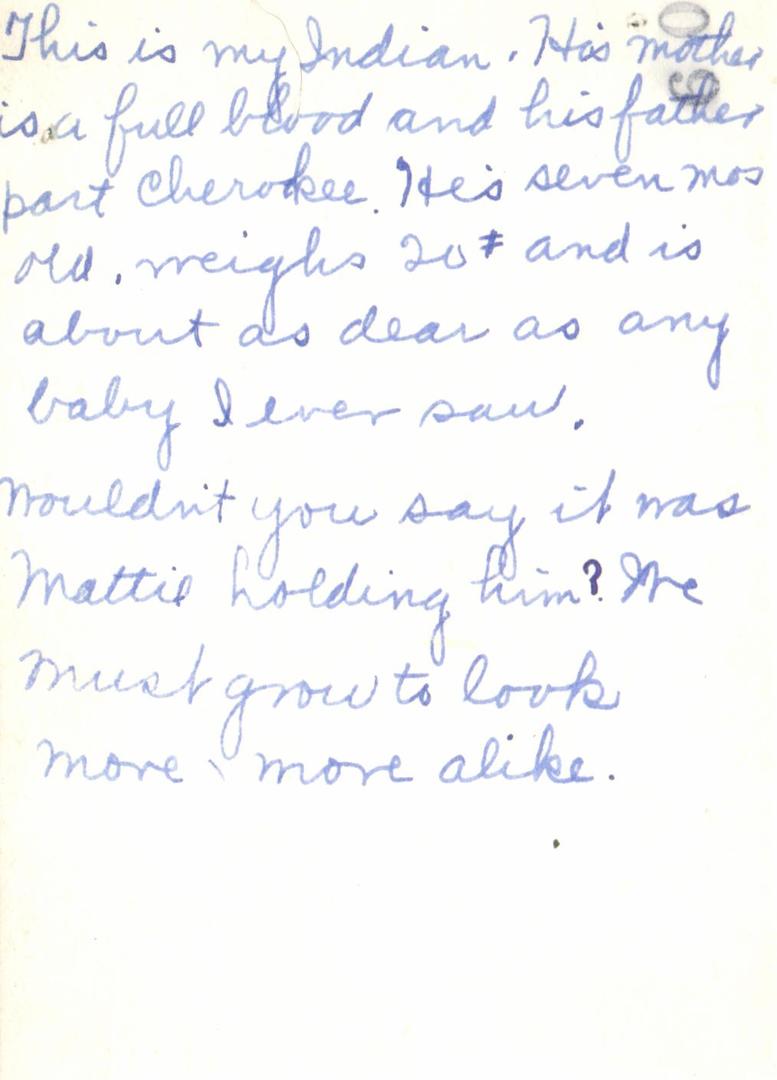 This is my Indian. His mother
is a full blood and his father
part Cherokee. He's seven mos
old, weighs 20# and is
about as dear as any
baby I ever saw.
Wouldn't you say it was
Mattie holding him? We
must grow to look
more \ more alike.